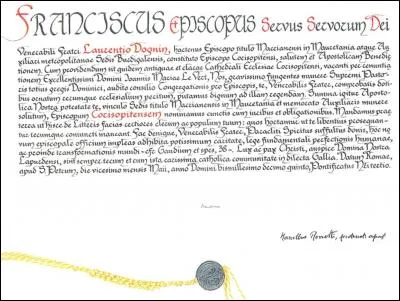 FRANCISCUS EPISCOPUS SERVUS SERVORUM DEI
Venerabili Fratri Laurentio Dognin, hactenus Episcopo titulo Maccianensi in Mauretania atque Au-
xiliari metropolitanae Sedis Burdigalensis, constituto Episcopo Corisopitensi, salutem et Apostolicam Benedic-
tionem. Cum providendum sit quidem antiquae et clarae Cathedrali Ecclesiae Corisopitensi, vacanti per remotio-
nem Excellentissimi Domini Joannis Mariae Le Vert, Nos, gravissimo fungentes munere Supremi Pasto-
ris totius gregis Dominici, audito consilio Congregationis pro Episcopis, te, Venerabilis Frater, comprobatis doti-
bus ornatum rerumque ecclesialium peritum, putamus dignum ad illam regendam. Summa igitur Aposto-
lica Nostra potestate te, vinculo Sedis titulo Maccianensis in Mauretania et memorato Auxiliaris munere
solutum, Episcopum Corisopitensem nominamus cunctis cum iuribus et obligationibus. Mandamus prae-
terea ut hisce de Litteris facias certiores clerum ac populum tuum: quos hortamur ut te libentius prosequan-
tur tecumque communes maneant. Fac denique, Venerabilis Frater, Paracliti Spiritus suffultus donis, hoc no-
vum episcopale officium impleas adhibita potissimum caritate, lege fundamentali perfectionis humanae,
ac proinde transformationis mundi - cfr. Gaudium et spes, 38 -. Lux ac pax Christi, auspice Domina Nostra
Lapurdensi, sint semper tecum et cum ista, carissima, catholica communitate in dilecta Gallia. Datum Romae,
apud S. Petrum, die vicesimo mensis Maii, anno Domini bismillesimo decimo quinto, Pontificatus Nostri tertio.